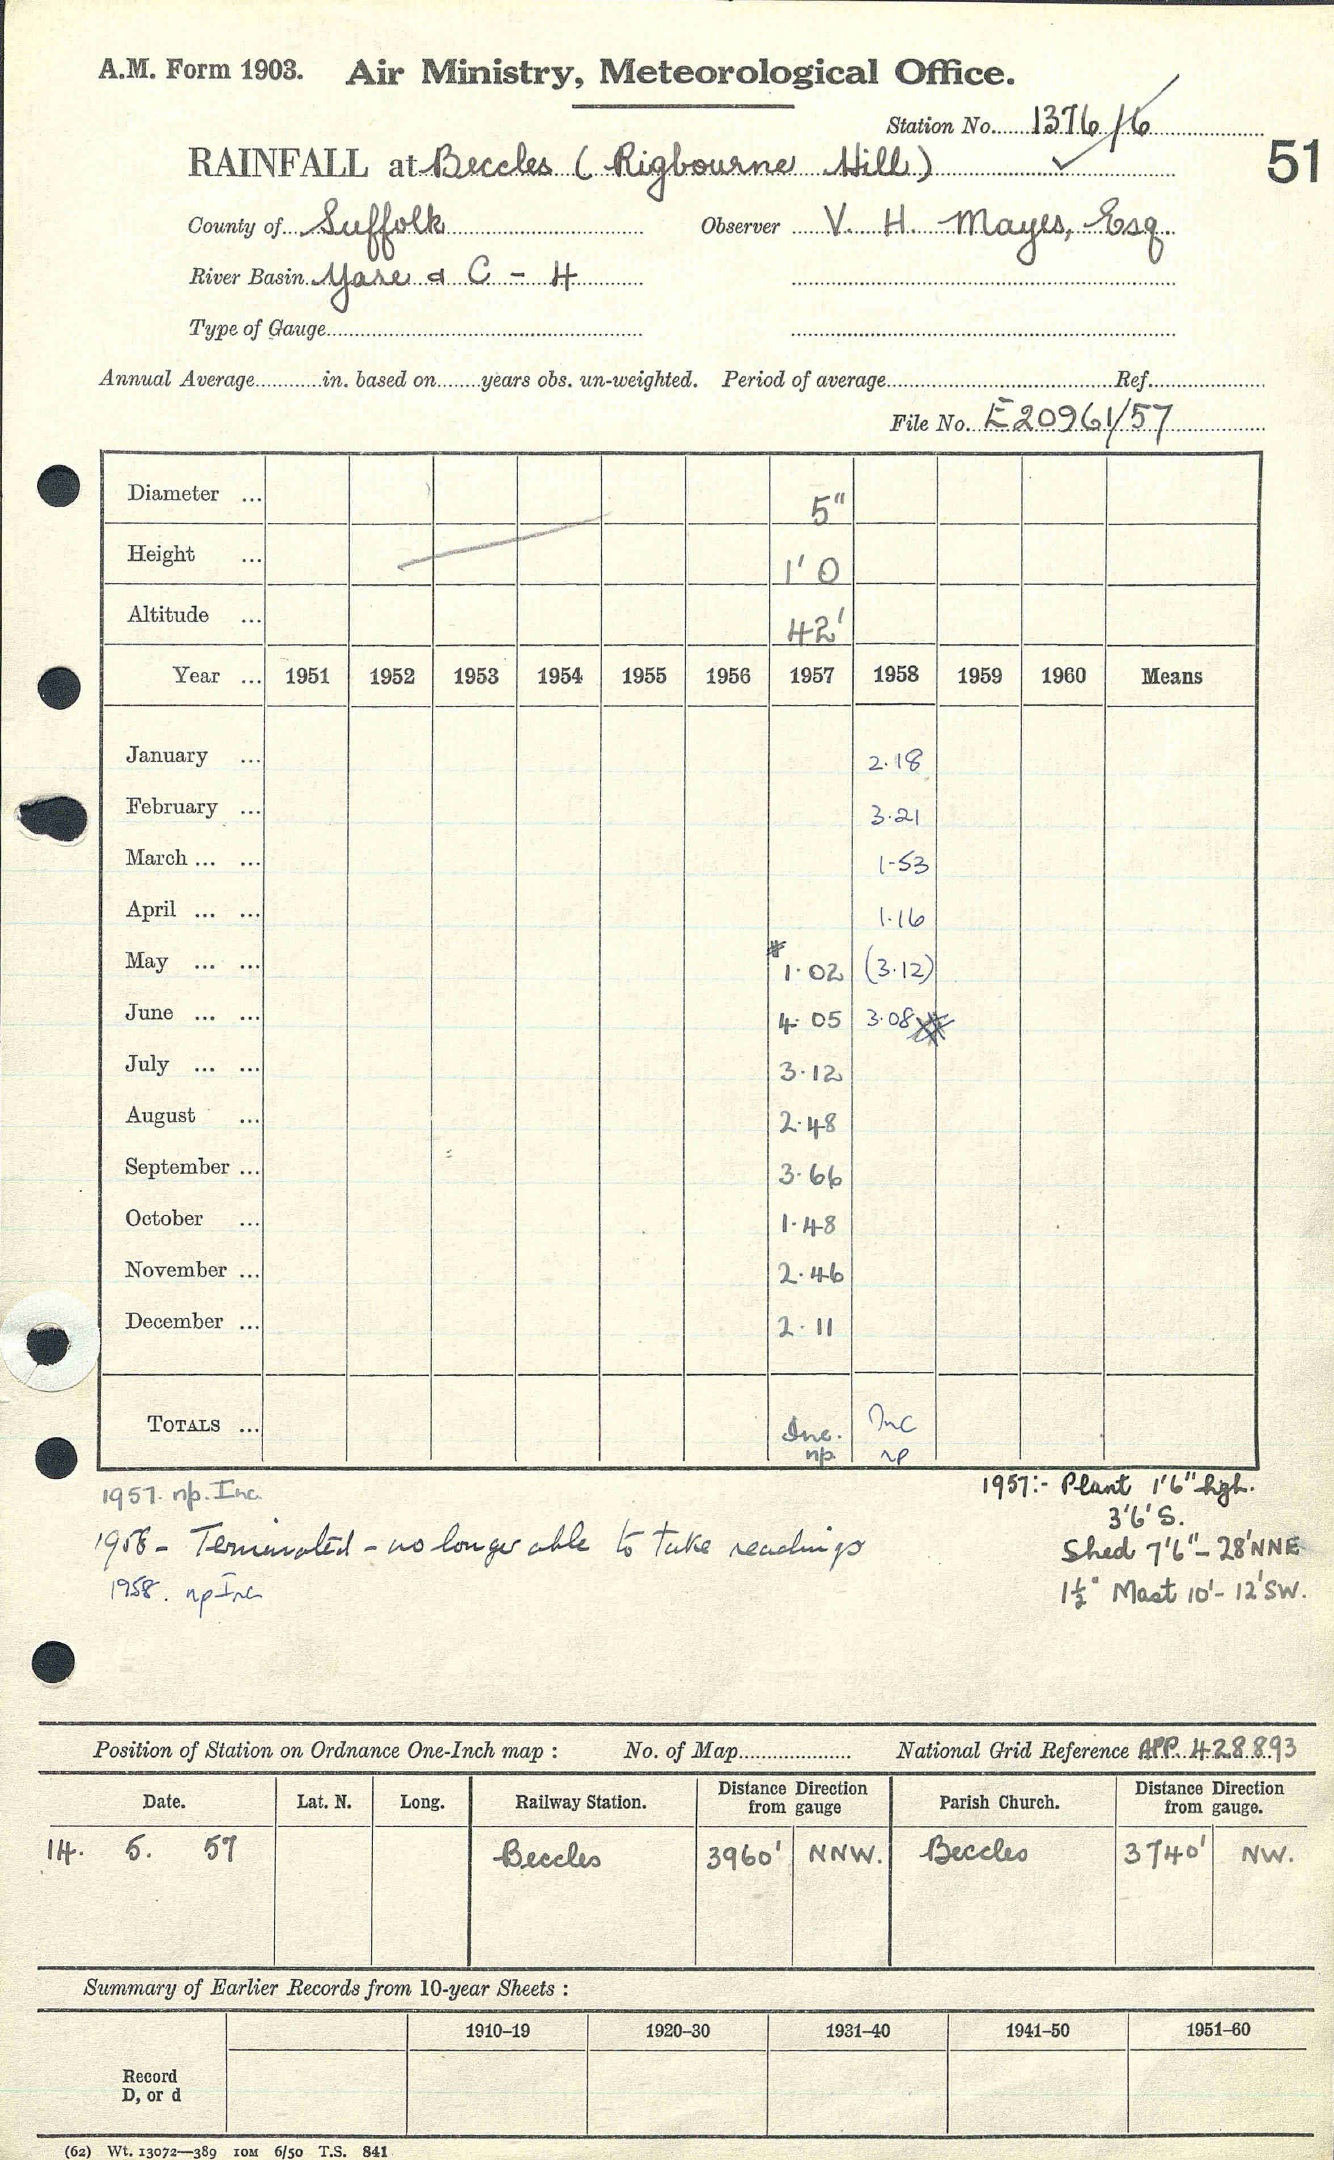 A.M. Form 1903. Air Ministry, Meteorological Office.
Station No. 1376/6
RAINFALL at Beccles (Rigbourne Hill)
51
County of Suffolk Observer V. H. Mayes, Esq.
River Basin Yare & C - 4
Type of Gauge
Annual Average in. based on years obs. un-weighted. Period of average Ref.
File No. E20961/57
Diameter ... 5"
Height ... 1' 0
Altitude ... 42'
Year ... 1951 1952 1953 1954 1955 1956 1957 1958 1959 1960 Means
January ... 2.18
February ... 3.21
March ... ... 1.53
April ... ... 1.16
May ... ... # 1.02 (3.12)
June ... ... 4.05 3.08
July ... ... 3.12
August ... 2.48
September ... 3.66
October ... 1.48
November ... 2.46
December ... 2.11
TOTALS ... Inc. np. Inc np
1957. np. Inc.
1957:- Plant 1'6" high.
3'6' S.
1958 - Terminated - no longer able to take readings
Shed 7'6" - 28'NNE
1958. np Inc
1½" Mast 10' - 12'SW.
Position of Station on Ordnance One-Inch map : No. of Map National Grid Reference APP. 428893
Date. Lat. N. Long. Railway Station. Distance Direction from gauge Parish Church. Distance Direction from gauge.
14. 5. 57 Beccles 3960' NNW. Beccles 3740' NW.
Summary of Earlier Records from 10-year Sheets :
1910–19 1920–30 1931–40 1941–50 1951–60
Record
D, or d
(62) Wt. 13072—389 10M 6/50 T.S. 841